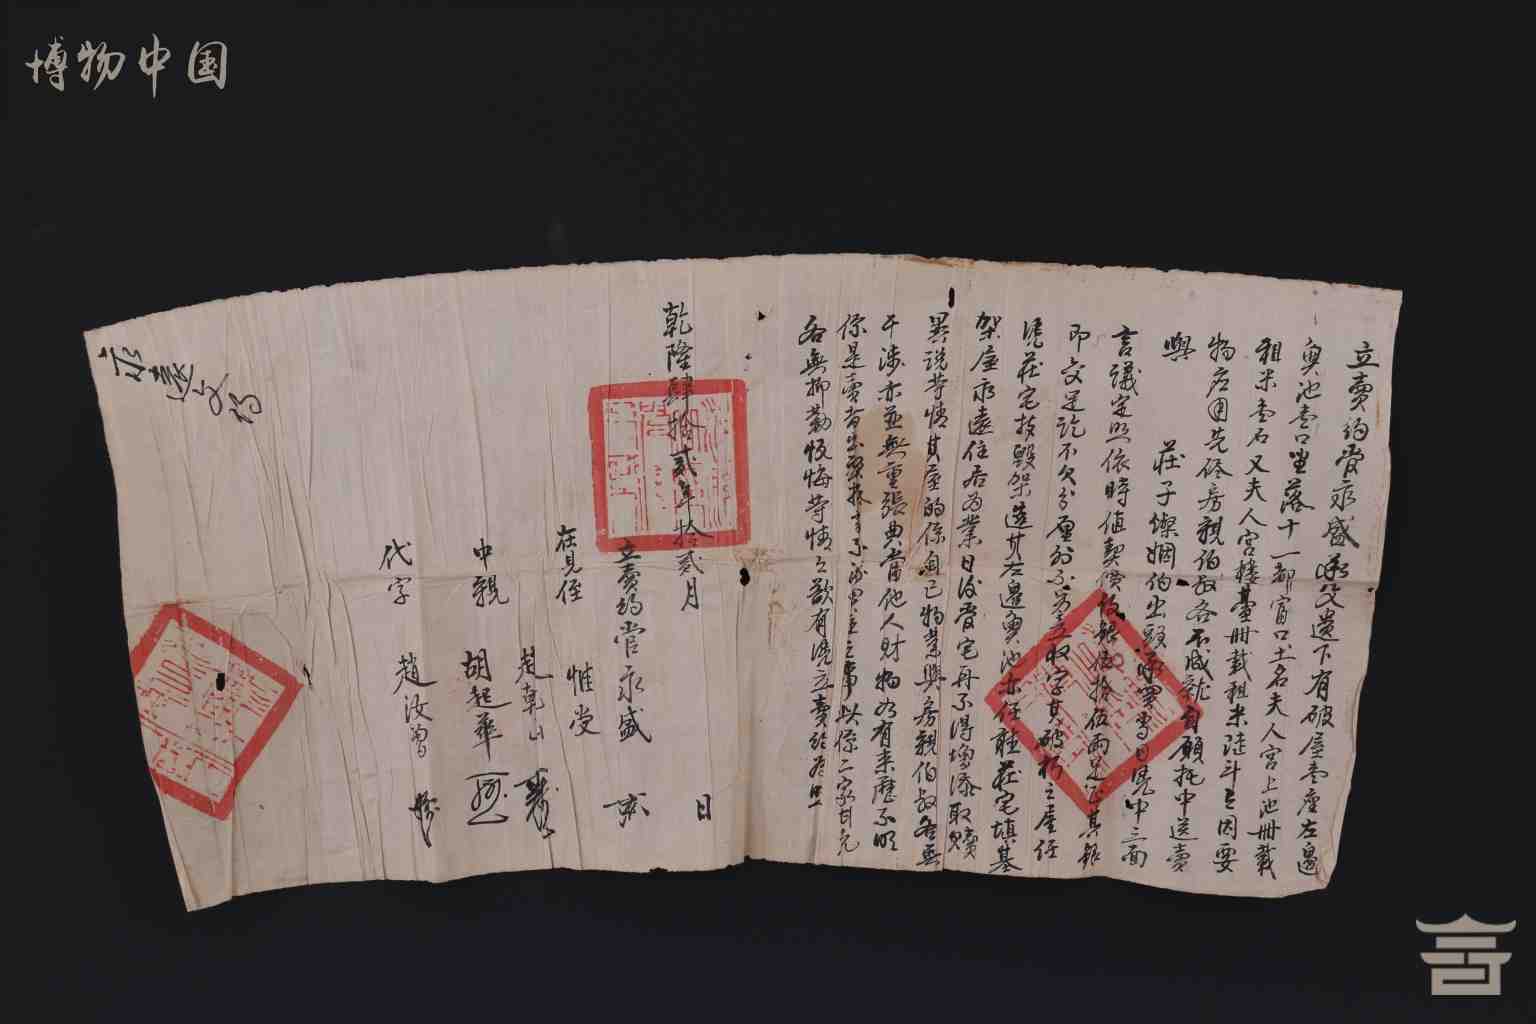 博物中国
立賣約訾永盛承父遺下有破屋壹座左邊
魚池壹口坐落十一都富口土名夫人宮上池冊載
租米壹石又夫人宮樓臺冊載租米陸斗正因要
物應用先侭房親伯叔各不成就自願托中送賣
與 莊子燦姻伯出
言議定照依時值契價紋銀伍拾伍兩足正其銀
即交足訖不欠分厘外不另立收字其破朽之屋任
憑莊宅拔毀架造其左邊魚池亦任聽莊宅填基
架屋永遠住居為業日後訾宅再不得增添取贖
異說等情其屋的係自己物業與房親伯叔各無
干涉亦並無重張典當他人財物如有來歷不明
係是賣者出頭抵當不涉買主之事此係二家甘允
各無抑勒反悔等情之欲有憑立賣約為照
乾隆肆拾貳年拾貳月 日
立賣約訾永盛
在見侄 惟
趙乾山
中親 胡起華
代字 趙汝曾